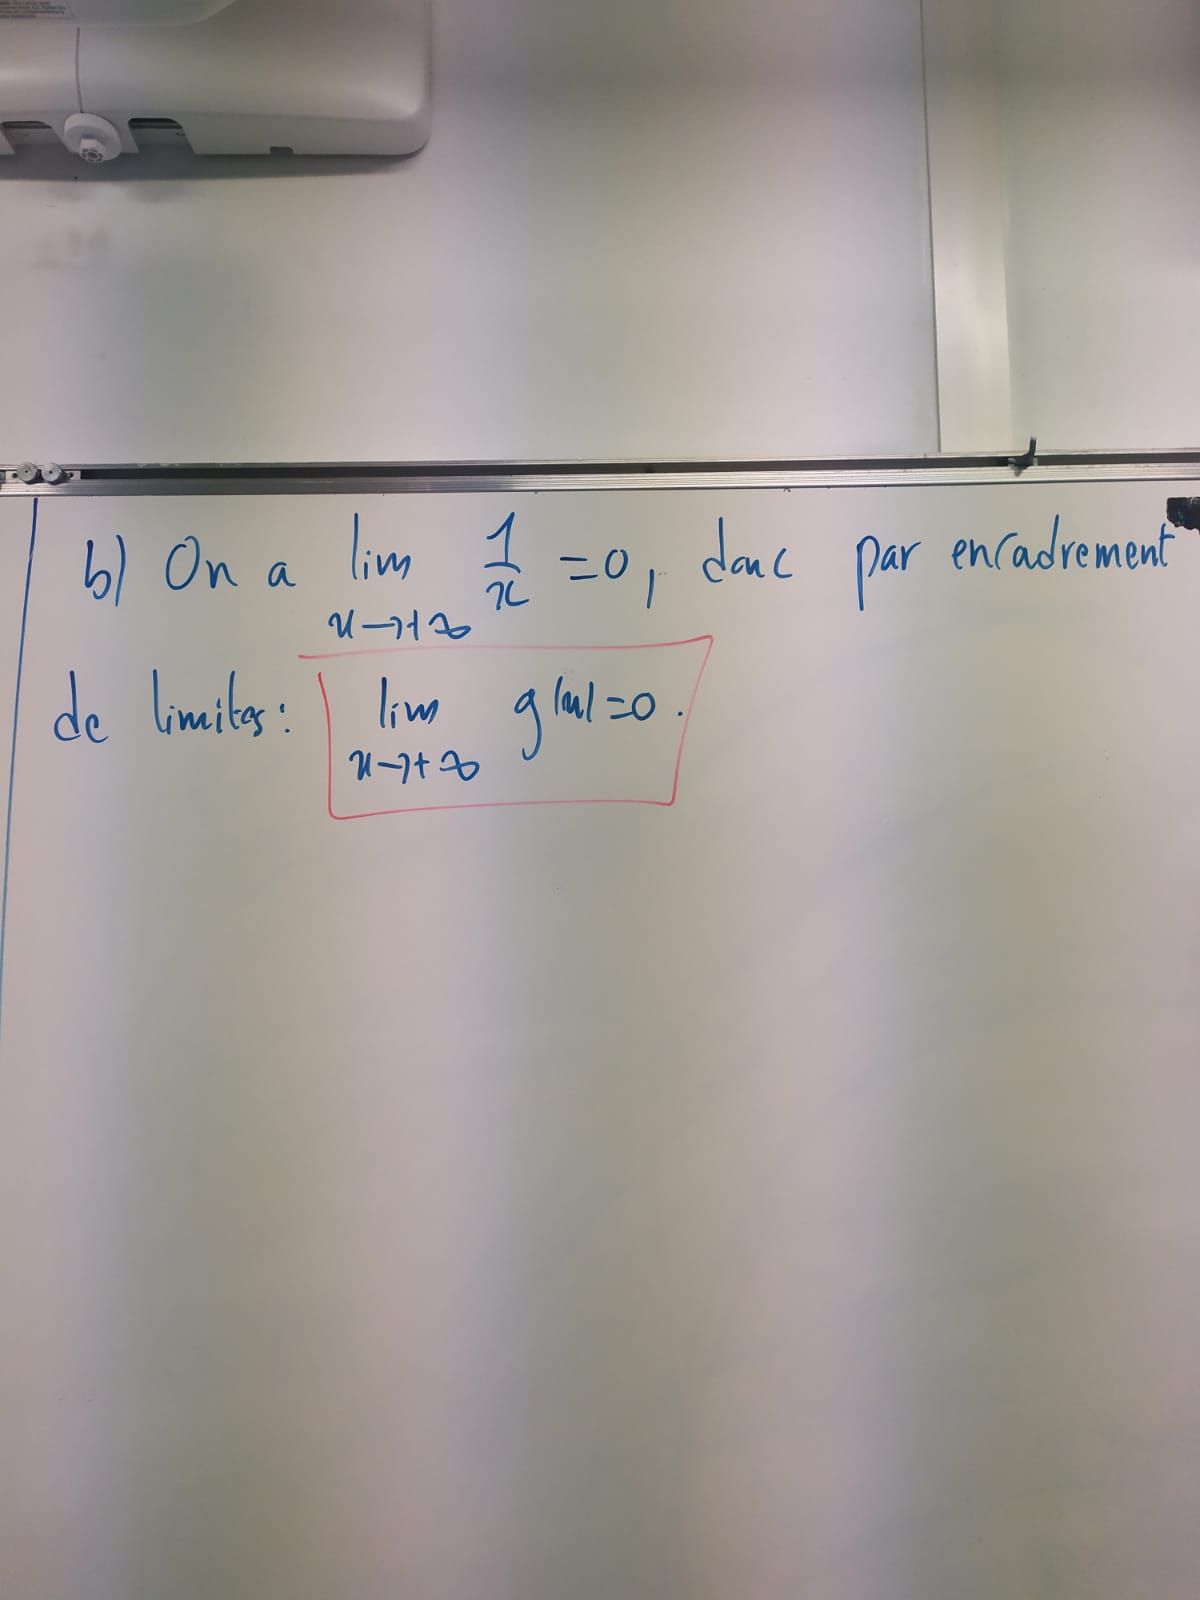 b) On a lim 1/x = 0, donc par encadrement
x→+∞
de limites : lim g(x) = 0.
x→+∞